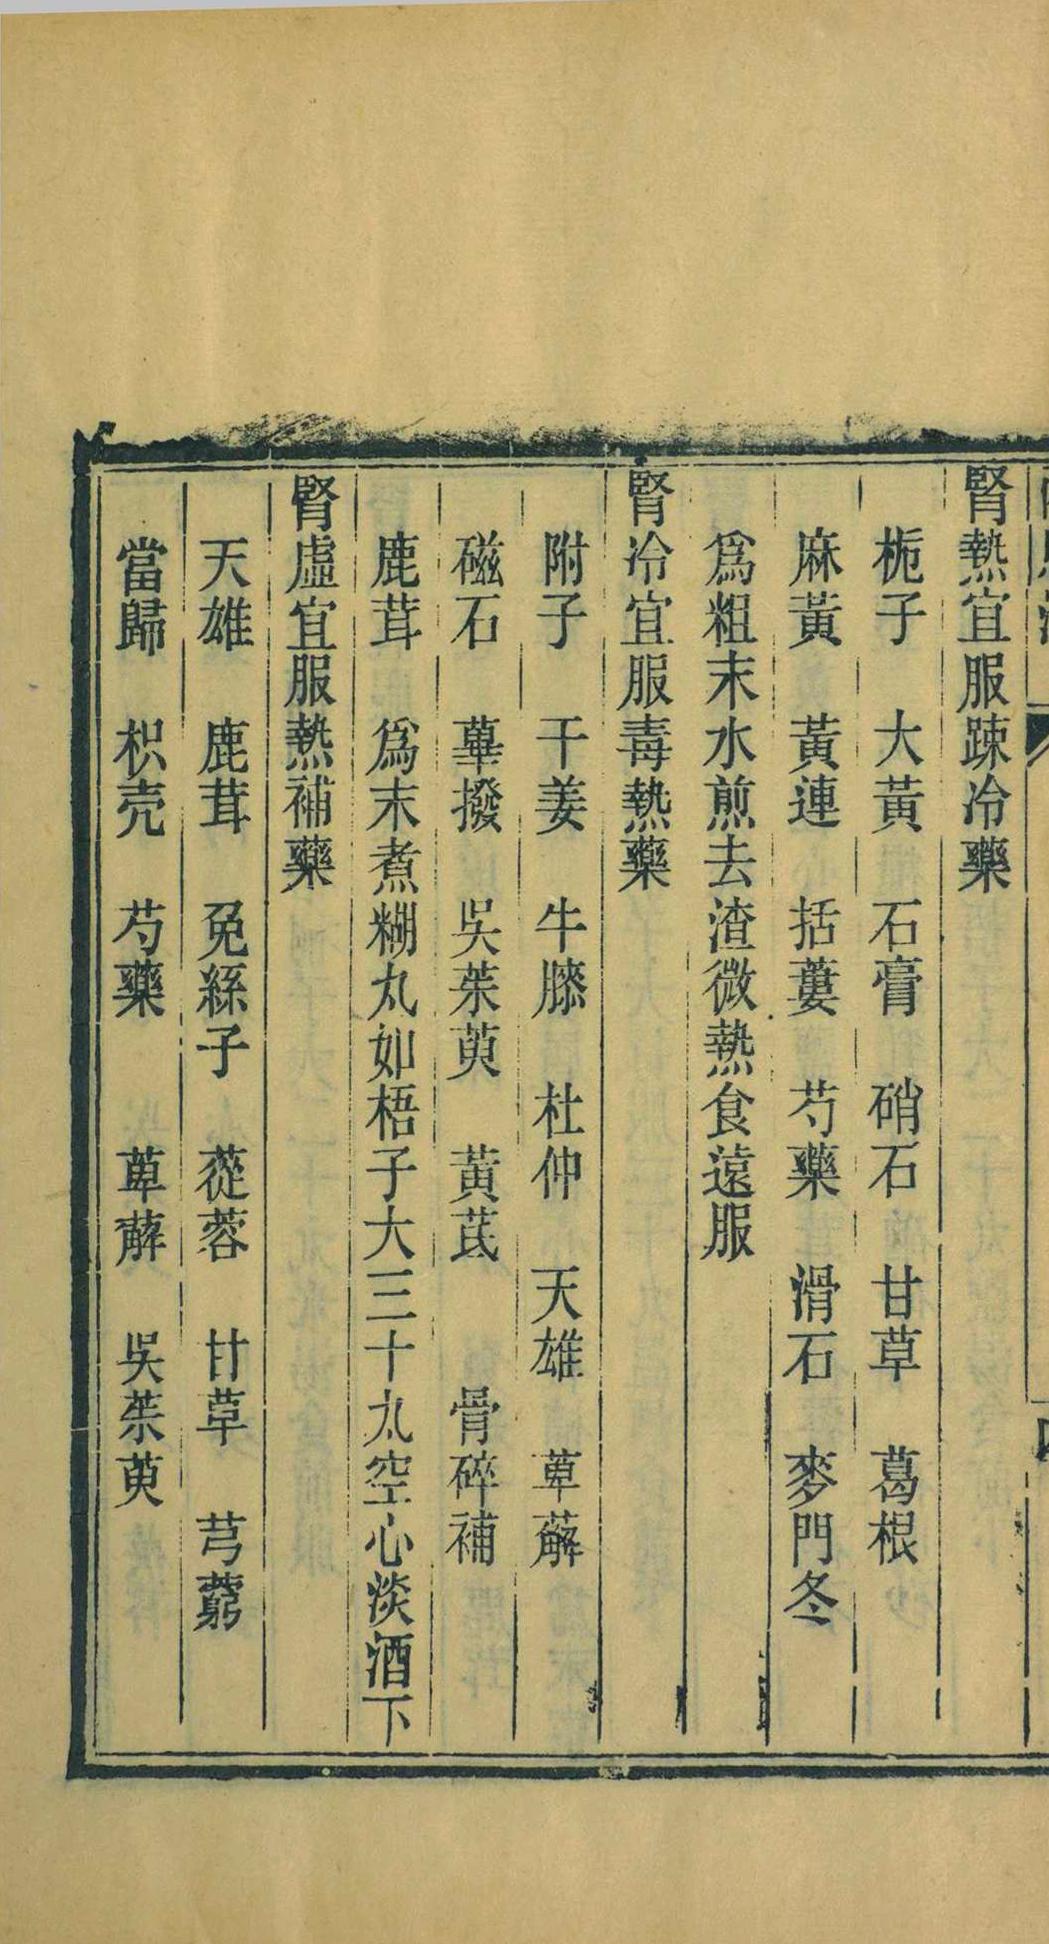 腎熱宜服踈冷藥
栀子　大黃　石膏　硝石　甘草　葛根
麻黃　黃連　括蔞　芍藥　滑石　麥門冬
爲粗末水煎去渣微熱食遠服
腎冷宜服毒熱藥
附子　干姜　牛膝　杜仲　天雄　萆薢
磁石　蓽撥　吳茱萸　黃茋　骨碎補
鹿茸　爲末煮糊丸如梧子大三十丸空心淡酒下
腎虛宜服熱補藥
天雄　鹿茸　兎絲子　蓯蓉　甘草　芎藭
當歸　枳壳　芍藥　萆薢　吳茱萸